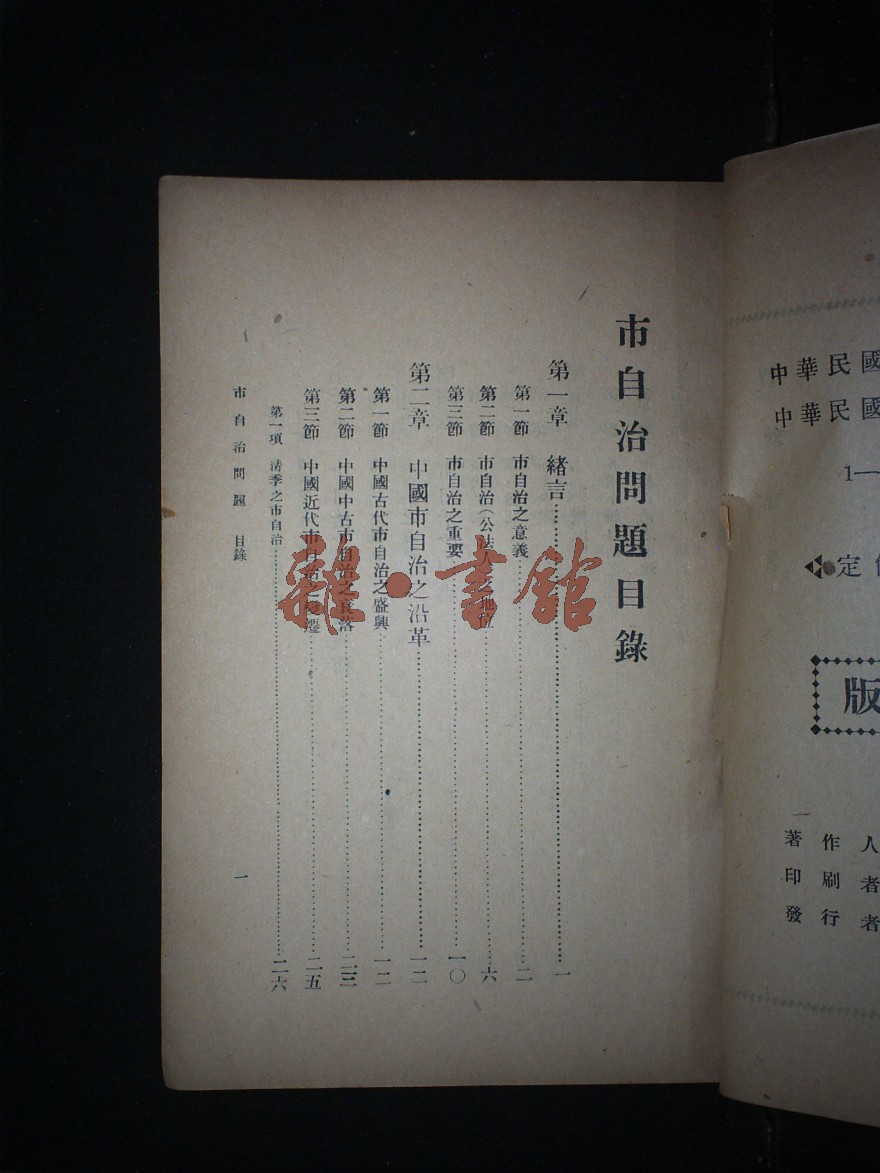 市自治問題目錄
第一章　緒言…………一
第一節　市自治之意義…………二
第二節　市自治(公法人)之地位…………六
第三節　市自治之重要…………一〇
第二章　中國市自治之沿革…………一二
第一節　中國古代市自治之盛興…………一二
第二節　中國中古市自治之衰落…………二三
第三節　中國近代市自治之變遷…………二五
第一項　清季之市自治…………二六
市自治問題　目錄　一
雜·書館
中華民國
中華民國
1—
定
版
著作人
印刷者
發行者